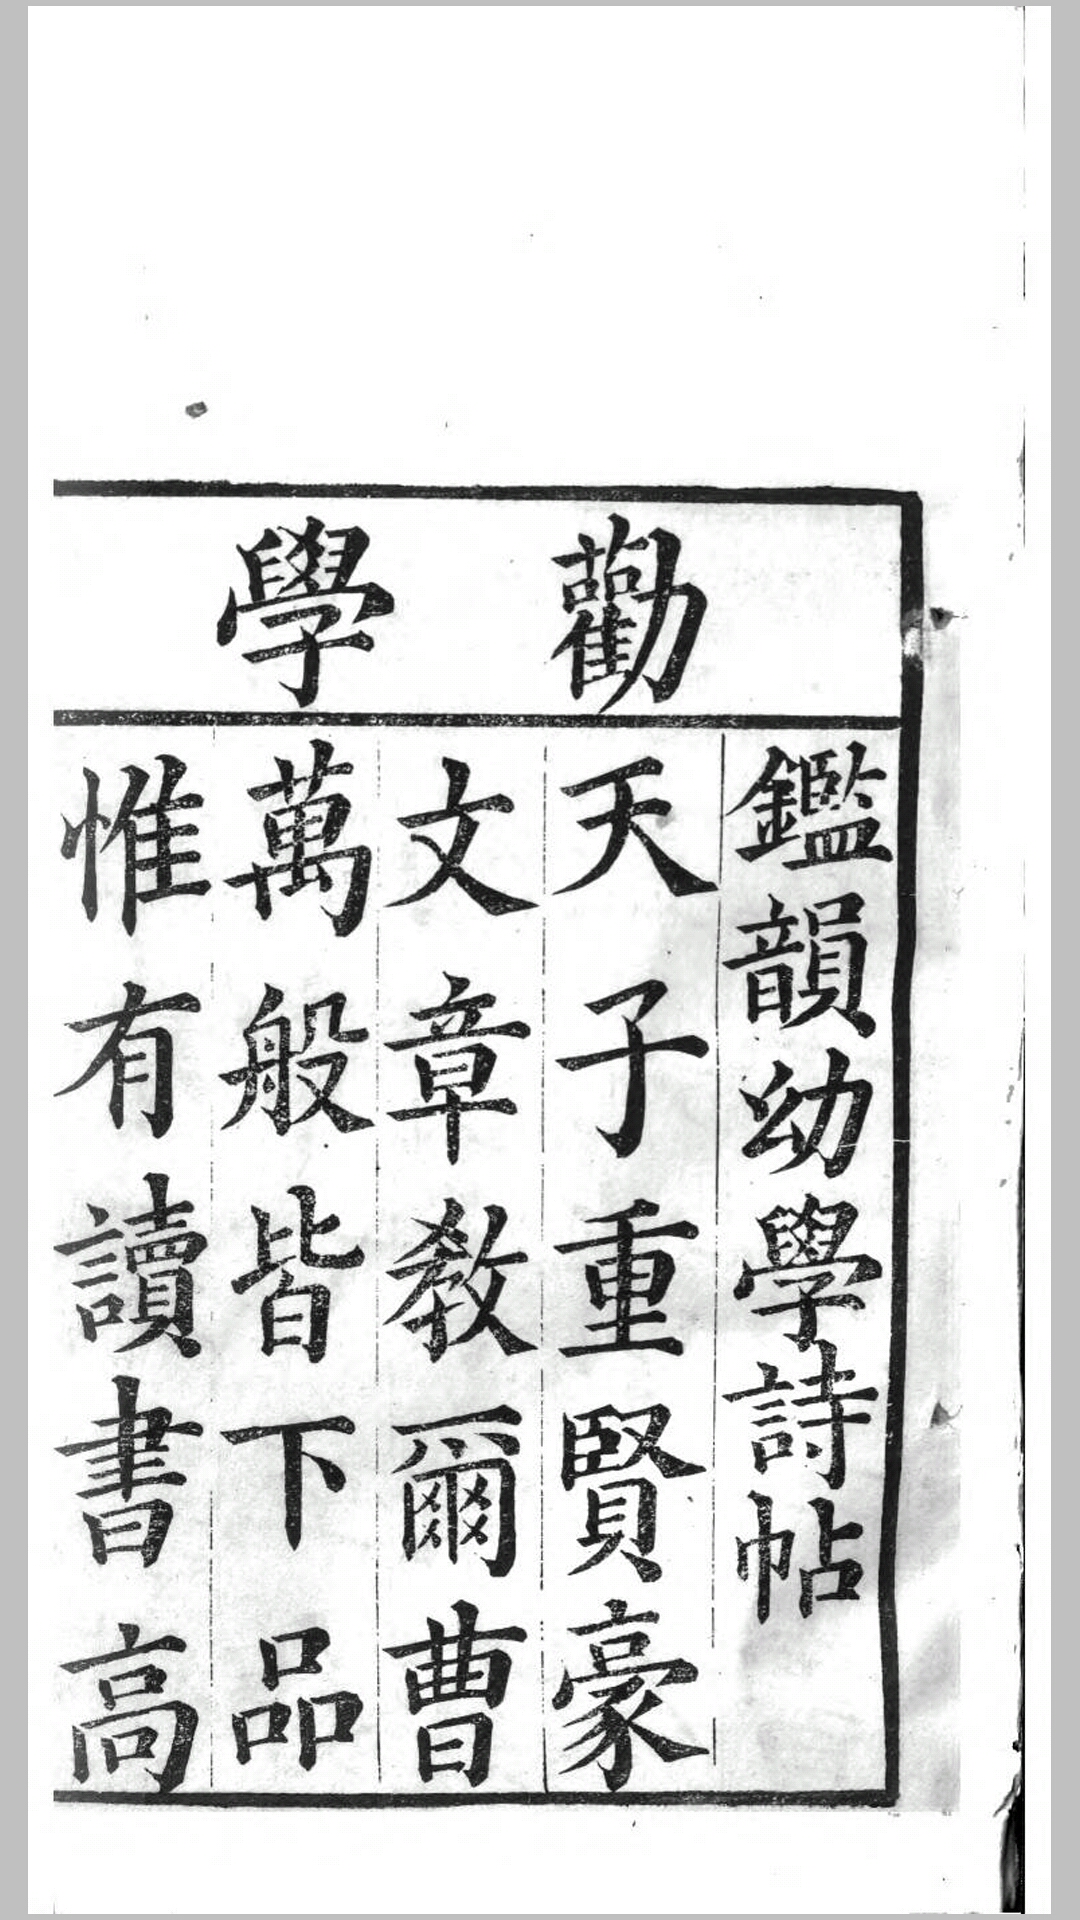 勸學
鑑韻幼學詩帖
天子重賢豪
文章教爾曹
萬般皆下品
惟有讀書高